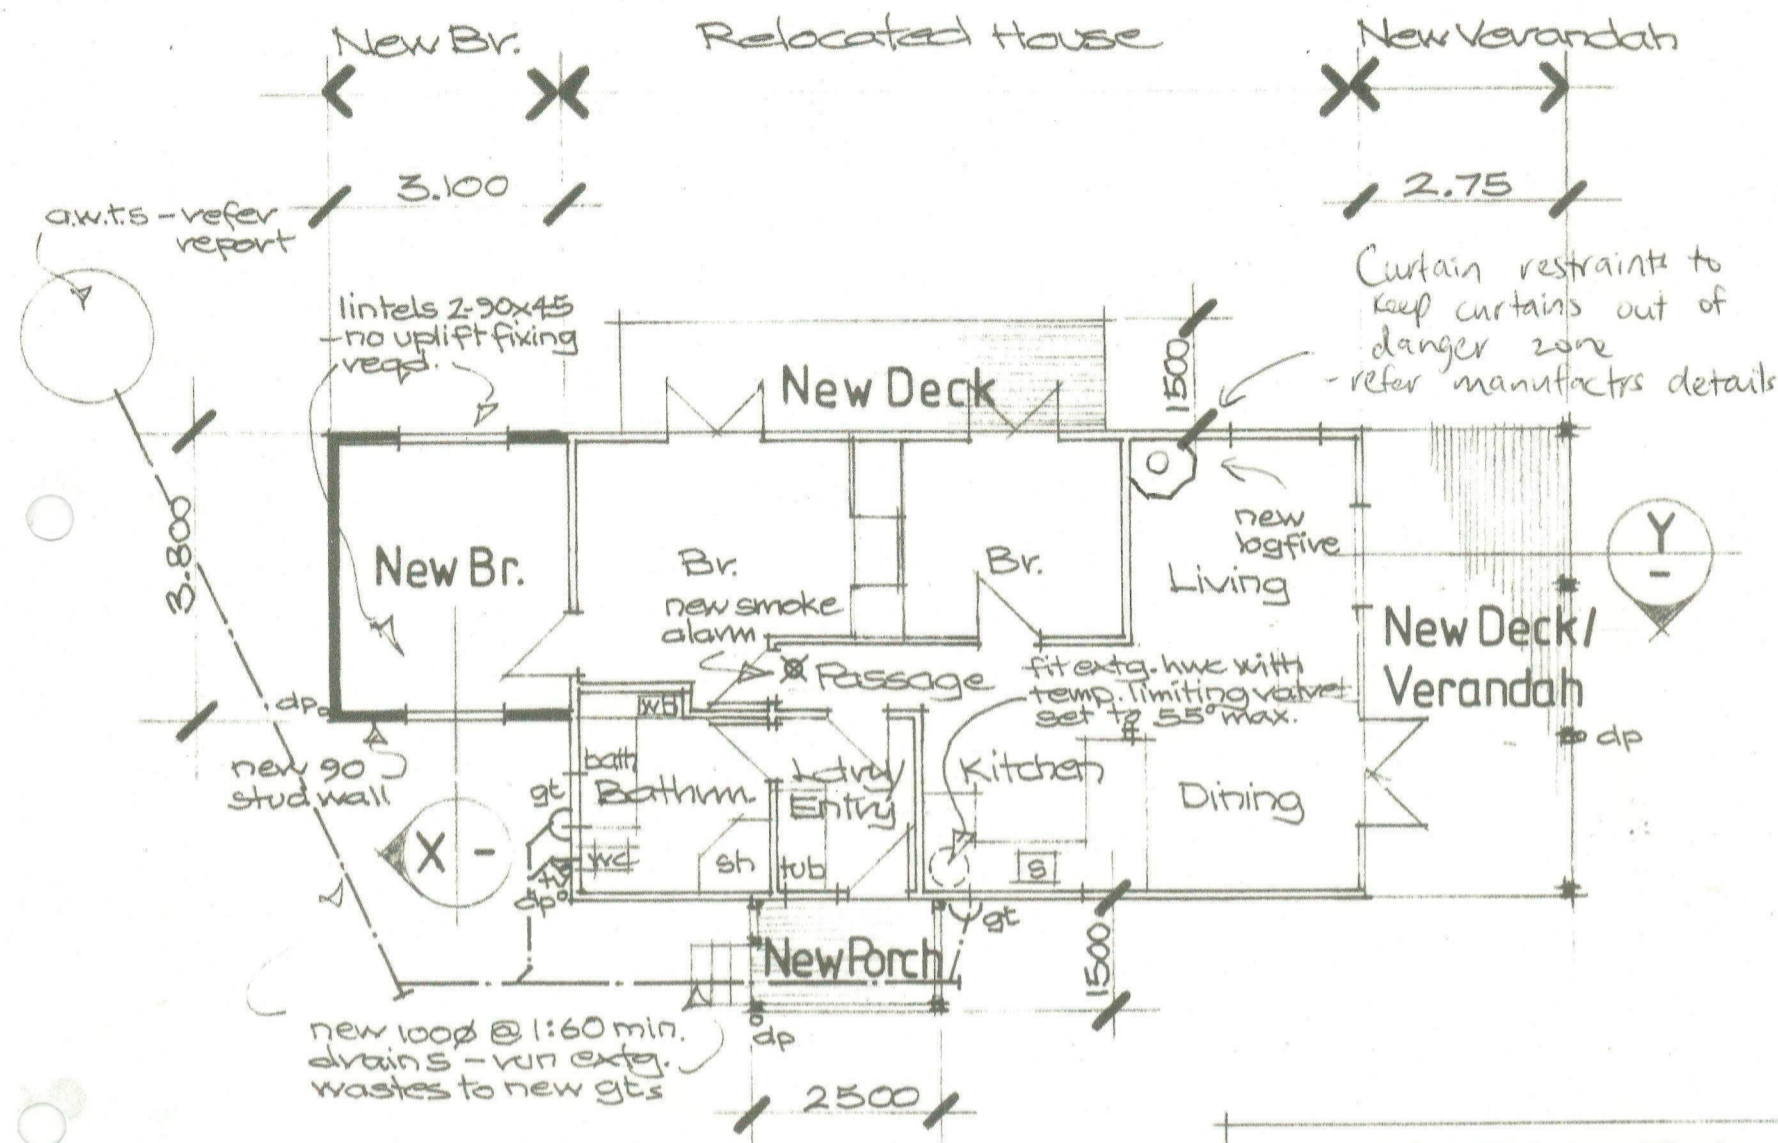 New Br.
Relocated House
New Verandah
3.100
2.75
a.w.t.s - refer
report
lintels 2-90x45
- no uplift fixing
reqd.
Curtain restraints to
keep curtains out of
danger zone
- refer manufactrs details
1500
New Deck
3.800
new
logfire
Y
-
New Br.
Br.
Br.
Living
new smoke
alarm
New Deck/
Verandah
Passage
fit extg. hwc with
temp. limiting valve
set to 55° max.
dp
WB
dp
new 90
stud wall
bath
Bathrm.
Ldry/
Entry
Kitchen
Dining
gt
X -
wc
sh
tub
s
tv
dp
gt
New Porch
1500
new 100ø @ 1:60 min.
drains - run extg.
wastes to new gts
dp
2500